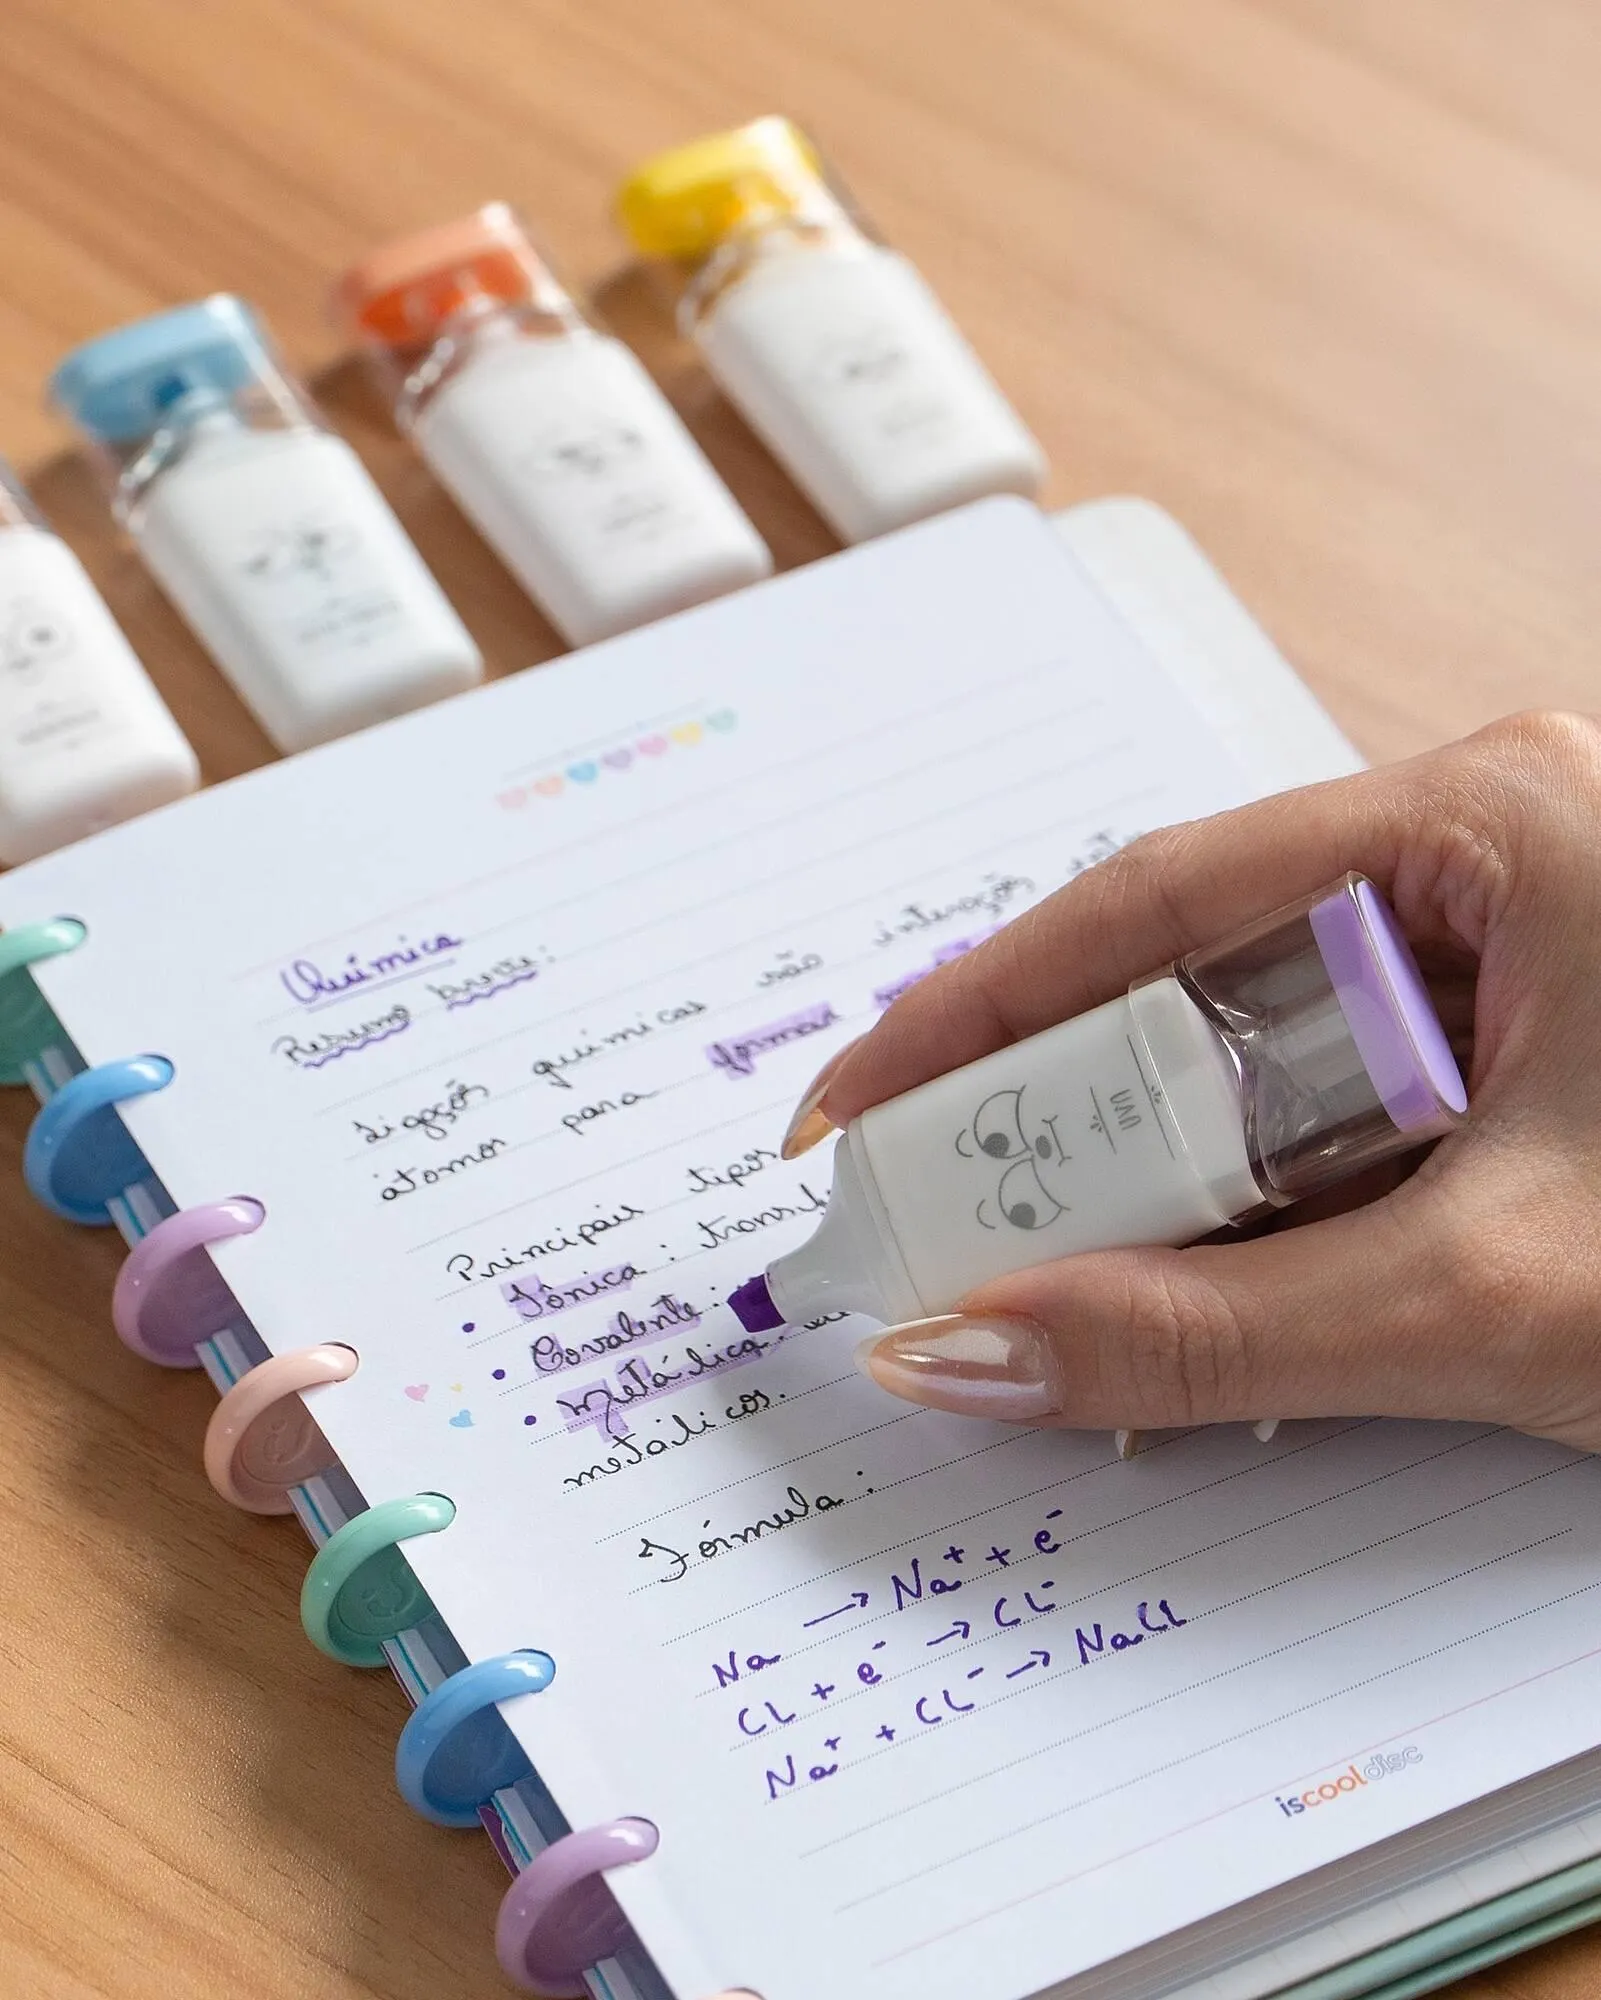 Química
Resumo breve:
Ligações químicas são interações entre
átomos para formar
Principais tipos
• Iônica: transf
• Covalente:
• metálica:
metálicos.
Fórmula:
Na → Na⁺ + e⁻
CL + e⁻ → CL⁻
Na⁺ + CL⁻ → NaCL
iscool disc
UVA